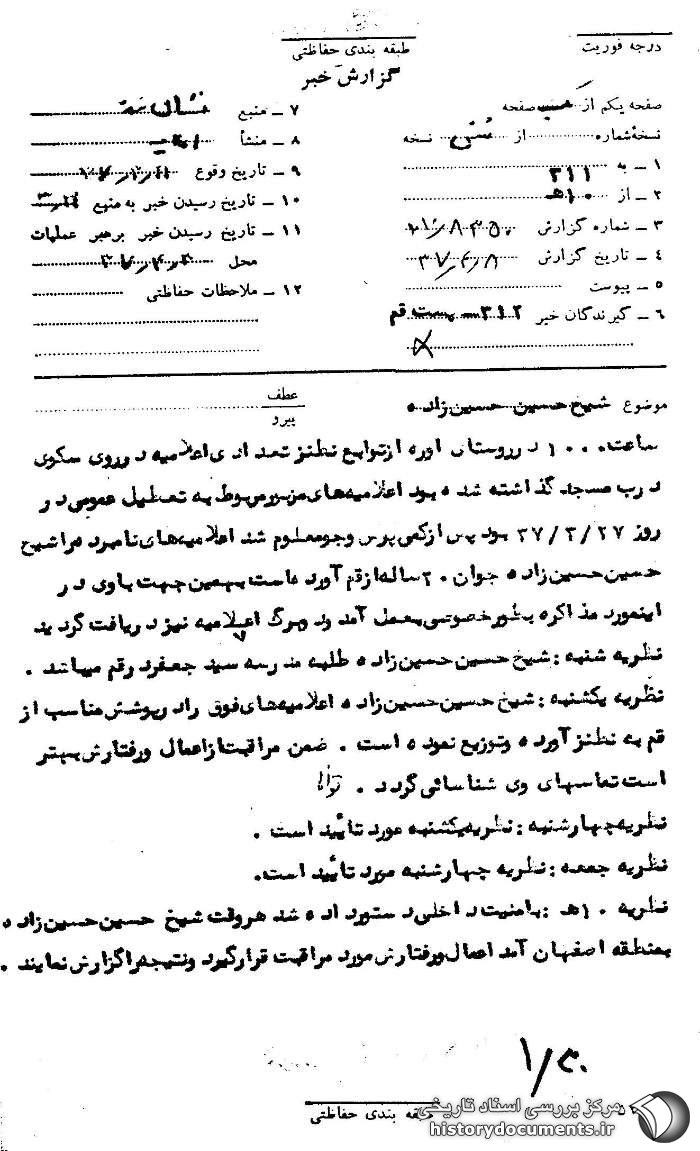 طبقه بندی حفاظتی
درجه فوریت
گزارش خبر
صفحه یکم از صفحه
نسخهٔ شماره از نسخه
۱ ـ به ۳۱۱
۲ ـ از ۱۰هـ
۳ ـ شماره گزارش
۴ ـ تاریخ گزارش
۵ ـ پیوست
۶ ـ گیرندگان خبر ۳۱۲ــ پست قم
۷ ـ منبع
۸ ـ منشأ
۹ ـ تاریخ وقوع
۱۰ ـ تاریخ رسیدن خبر به منبع
۱۱ ـ تاریخ رسیدن خبر برهبر عملیات
محل
۱۲ ـ ملاحظات حفاظتی
موضوع شیخ حسین حسین زاده
عطف
پیرو
ساعت ۱۰۰۰ در روستای اوره از توابع نطنز تعدادی اعلامیه در روی سکوی
درب مسجد گذاشته شده بود اعلامیه‌های مزبور مربوط به تعطیل عمومی در
روز ۳۷/۳/۲۷ بود پس از کمی پرس و جو معلوم شد اعلامیه‌های نامبرده را شیخ
حسین حسین زاده جوان ۲۰ ساله از قم آورده است بهمین جهت با وی در
اینمورد مذاکره بطور خصوصی بعمل آمد و برگ اعلامیه نیز دریافت گردید
نظریه شنبه : شیخ حسین حسین زاده طلبه مدرسه سید جعفر در قم میباشد .
نظریه یکشنبه : شیخ حسین حسین زاده اعلامیه‌های فوق را در پوشش مناسب از
قم به نطنز آورده و توزیع نموده است . ضمن مراقبت از اعمال و رفتارش بهتر
است تماسهای وی شناسائی گردد .
نظریه چهارشنبه : نظریه یکشنبه مورد تأیید است .
نظریه جمعه : نظریه چهارشنبه مورد تأیید است.
نظریه ۱۰هـ : بامنیت داخلی دستور داده شد هر وقت شیخ حسین حسین زاده
بمنطقه اصفهان آمد اعمال و رفتارش مورد مراقبت قرار گیرد و نتیجه را گزارش نمایند .
طبقه بندی حفاظتی
مرکز بررسی اسناد تاریخی
historydocuments.ir